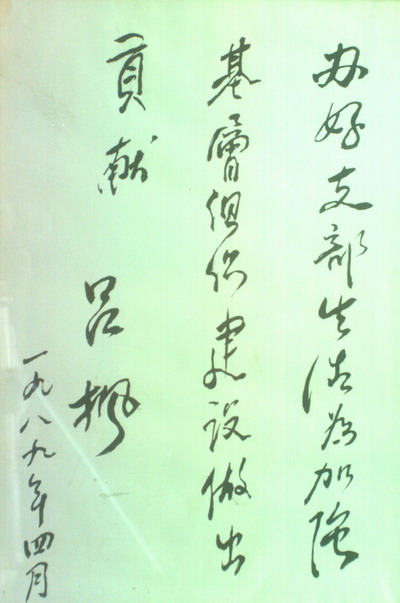 办好支部生活为加强
基層组织建设做出
貢献
吕枫
一九八九年四月